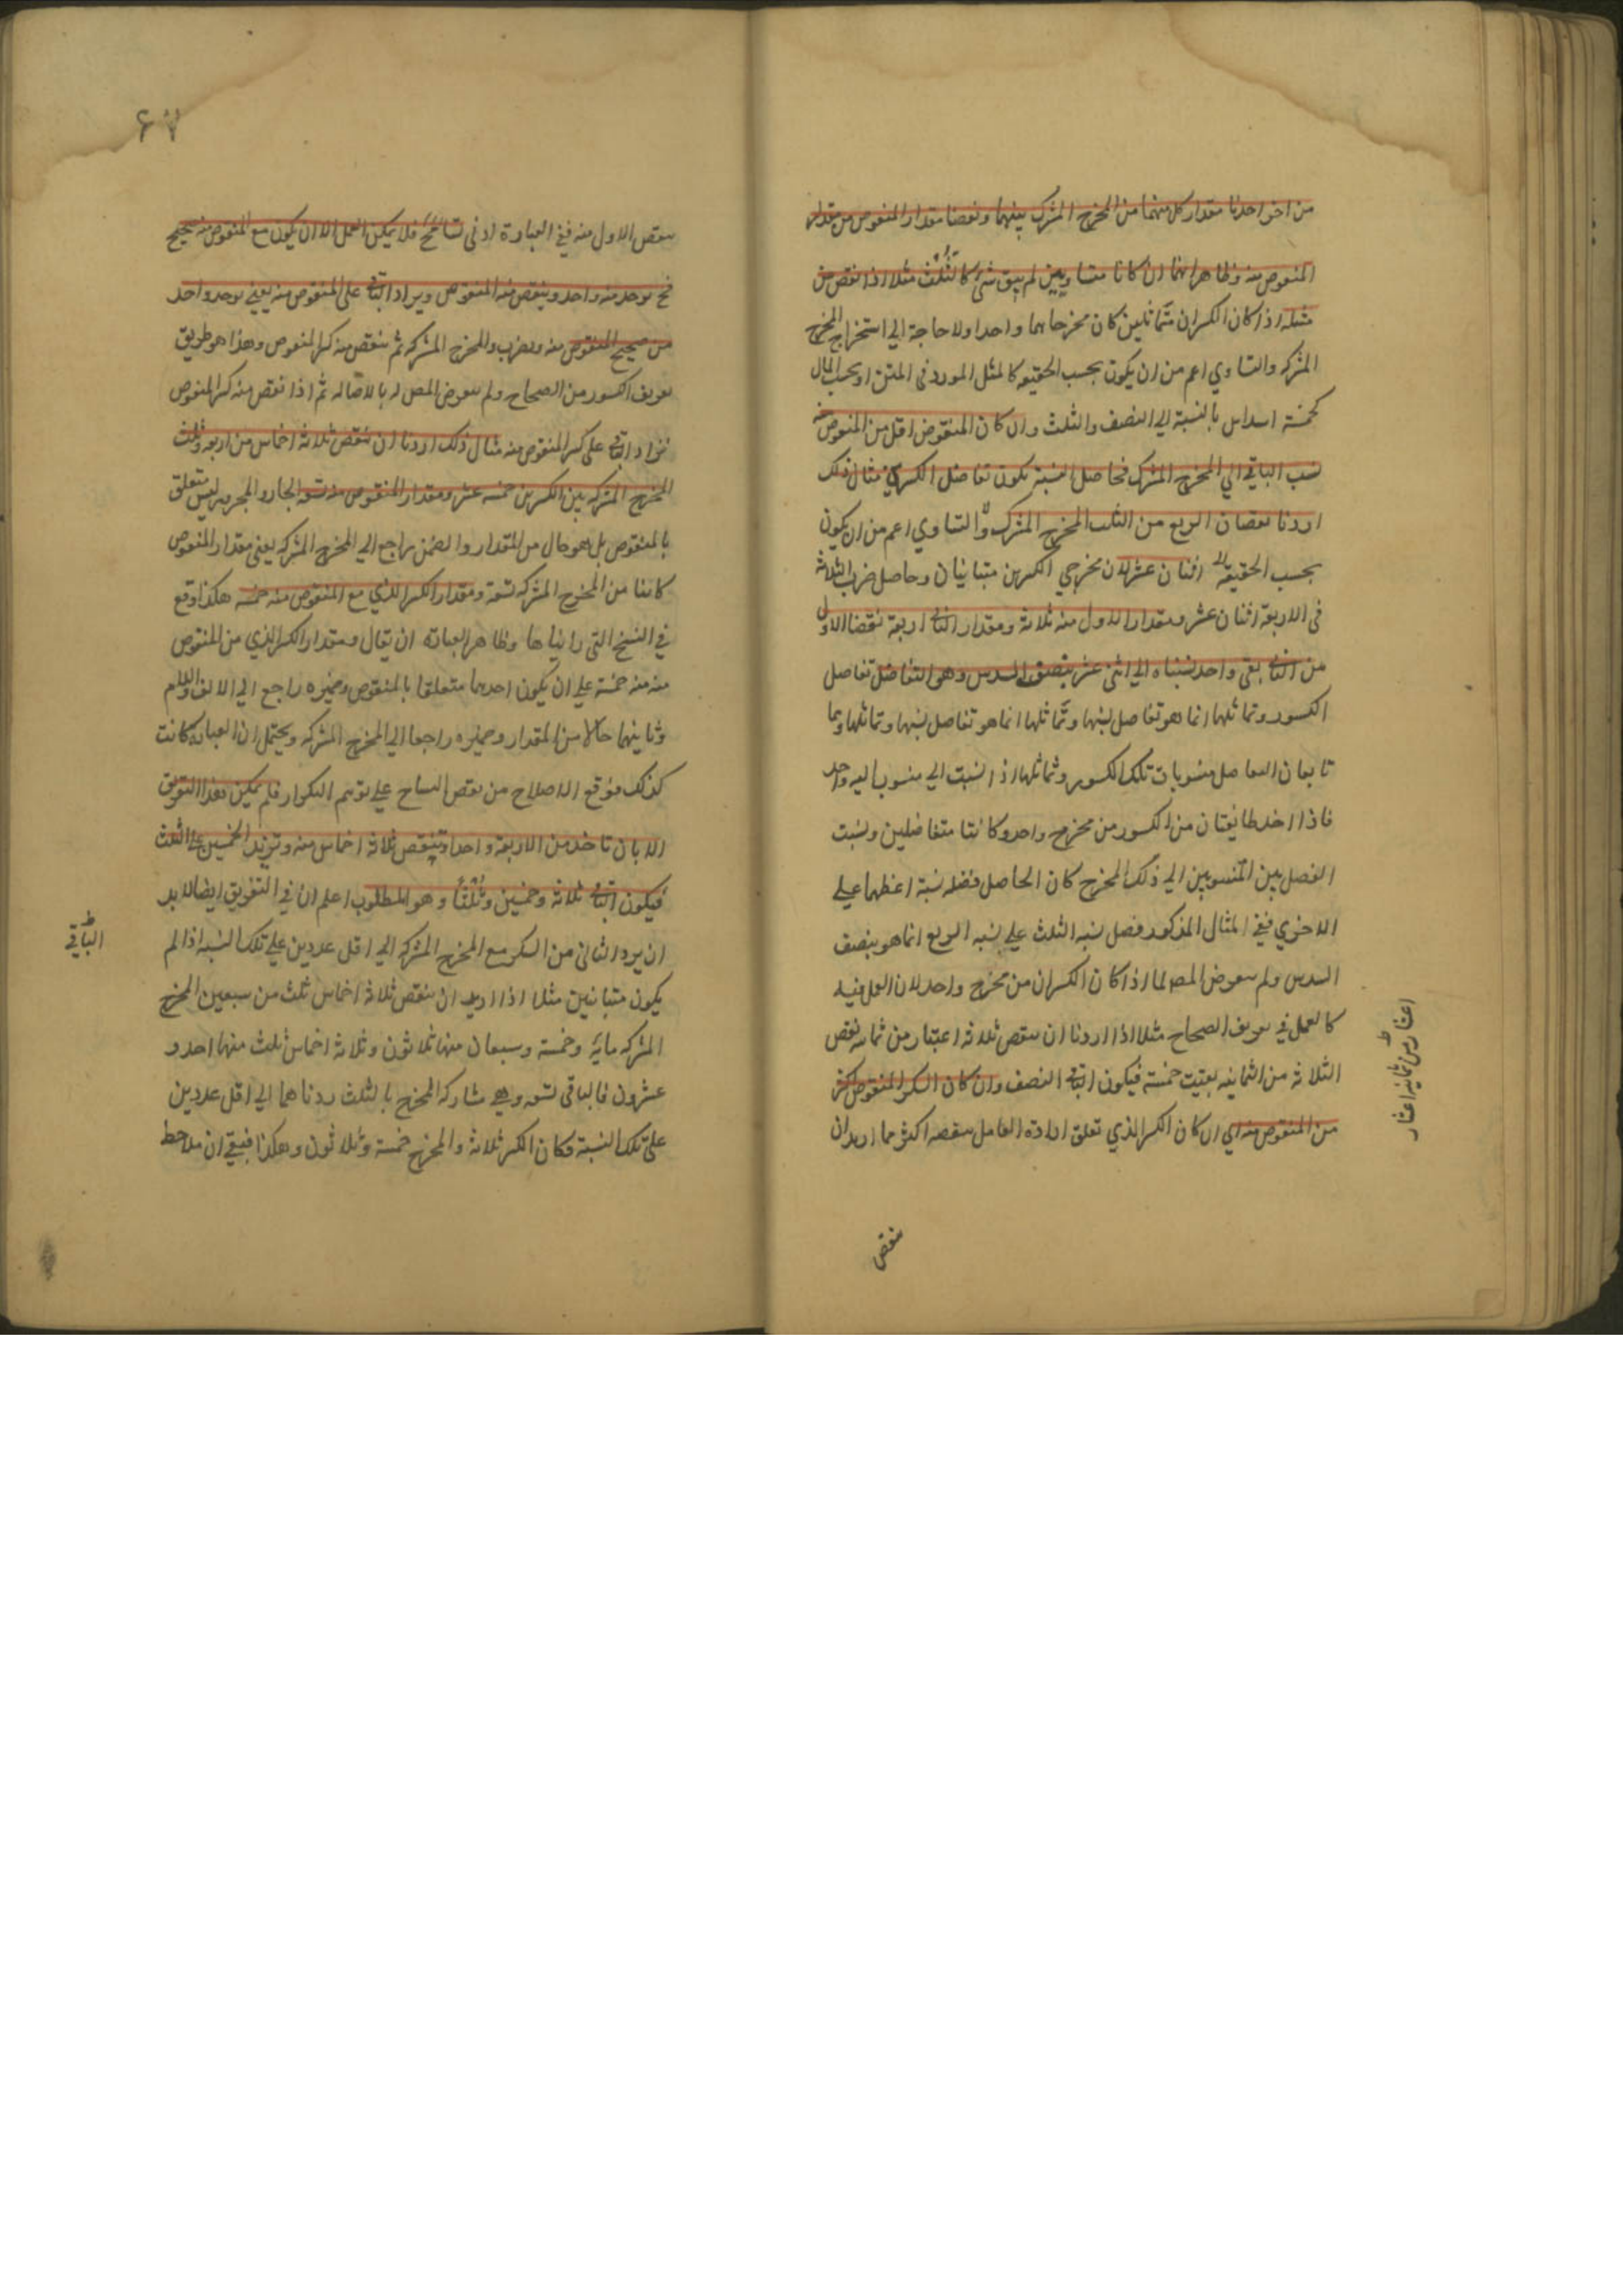 من اخر اخذنا مقدار كل منهما من المخرج المشترك بينهما ونقصنا مقدار المنقوص من مقدار
المنقوص منه وظاهر انهما ان كانا متساويين لم يبق شئ كالثلث مثلا اذا نقص من
مثله اذا كان الكسران متماثلين كان مخرجاهما واحدا ولا حاجة الي استخراج المخرج
المشترك والتساوي اعم من ان يكون بحسب الحقيقه كالمثل المورد في المتن او بحسب المال
كخمسة اسداس بالنسبة الي النصف والثلث وان كان المنقوص اقل من المنقوص منه
نسب الباقي الي المخرج المشترك فحاصل النسبة يكون تفاضل الكسرين مثال ذلك
اردنا نقصان الربع من الثلث المخرج المشترك والتساوي اعم من ان يكون
بحسب الحقيقة اثنان عشر لان مخرجي الكسرين متباينان وحاصل ضرب الثلاثة
في الاربعة اثنان عشر ومقدار الاول منه ثلاثة ومقدار الثاني اربعة نقصنا الاول
من الثاني بقي واحد نسبناه الي اثني عشر بنصف السدس وهو التفاضل تفاضل
الكسور وتماثلها انما هو تفاضل نسبها وتماثلها انما هو تفاضل نسبها وتماثلها وهما
تابعان لتفاضل منسوبات تلك الكسور وتماثلها اذا نسبت الي منسوب اليه واحد
فاذا اخذ طائفتان من الكسور من مخرج واحد وكانتا متفاضلين ونسبت
الفضل بين المنسوبين الي ذلك المخرج كان الحاصل فضله نسبة اعظمها علي
الاخري ففي المثال المذكور فضل نسبه الثلث علي نسبه الربع انما هو بنصف
السدس ولم يتعرض المصـ لما اذا كان الكسران من مخرج واحد لان العمل فيه
كالعمل في تفريق الصحاح مثلا اذا اردنا ان ننقص ثلاثة اعشار من ثمانيه نقص
الثلاثة من الثمانيه بقيت خمسة فيكون الباقي النصف وان كان الكسر المنقوص اكثر
من المنقوص منه اي ان كان الكسر الذي تعلق ارادة العامل بنقصه اكثر مما اريد ان
اعشار من ثمانيه اعشار
ينقص
٦٧
ينقص الاول منه ففي العبارة ادني تسامح فلا يمكن العمل الا ان يكون مع المنقوص منه صحيح
فح يوخذ منه واحد وينقص منه المنقوص ويزاد الباقي علي المنقوص منه يعني يوخذ واحد
من صحيح المنقوص منه ويضرب والمخرج المشترك ثم ينقص منه كسر المنقوص وهذا هو طريق
تفريق الكسور من الصحاح ولم يتعرض المصـ له بالاصاله ثم اذا نقص منه كسر المنقوص
نزاد الباقي علي كسر المنقوص منه مثال ذلك اردنا ان ننقص ثلاثة اخماس من اربعه وثلث
المخرج المشترك بين الكسرين خمسه عشر ومقدار المنقوص منه تسعه الجار والمجرور ليس متعلق
بالمنقوص بل هو حال من المقدار والضمير راجع الي المخرج المشترك يعني مقدار المنقوص
كائنا من المخرج المشترك تسعة ومقدار الكسر الذي مع المنقوص منه خمسه هكذا وقع
في النسخ التي رايناها وظاهر العبارة ان يقال ومقدار الكسر الذي من المنقوص
منه منه خمسة علي ان يكون احدهما متعلقا بالمنقوص وضميره راجع الي الالف واللام
وثانيهما حالا من المقدار وضميره راجعا الي المخرج المشترك ويحتمل ان العبارة كانت
كذلك فوقع الاصلاح من بعض النساخ علي توهم التكرار فلم يمكن هذا التفريق
الا بان تاخذ من الاربعة واحدا وتنقص ثلاثة اخماس منه وتزيد الخمسين علي الثلث
فيكون الباقي ثلاثة وخمسين وثلثا وهو المطلوب اعلم ان في التفريق ايضا لابد
ان يرد الثاني من الكسر مع المخرج المشترك الي اقل عددين علي تلك النسبه اذا لم
يكون متباينين مثلا اذا اريد ان ننقص ثلاثة اخماس ثلث من سبعين المخرج
المشترك مايه وخمسة وسبعان منها ثلاثون وثلاثة اخماس ثلث منها احد و
عشرون فالباقي تسعه وهي مشاركه المخرج بالثلث رددناهما الي اقل عددين
علي تلك النسبة فكان الكسر ثلاثة والمخرج خمسة وثلاثون وهكذا فينبغي ان يلاحظ
الباقي